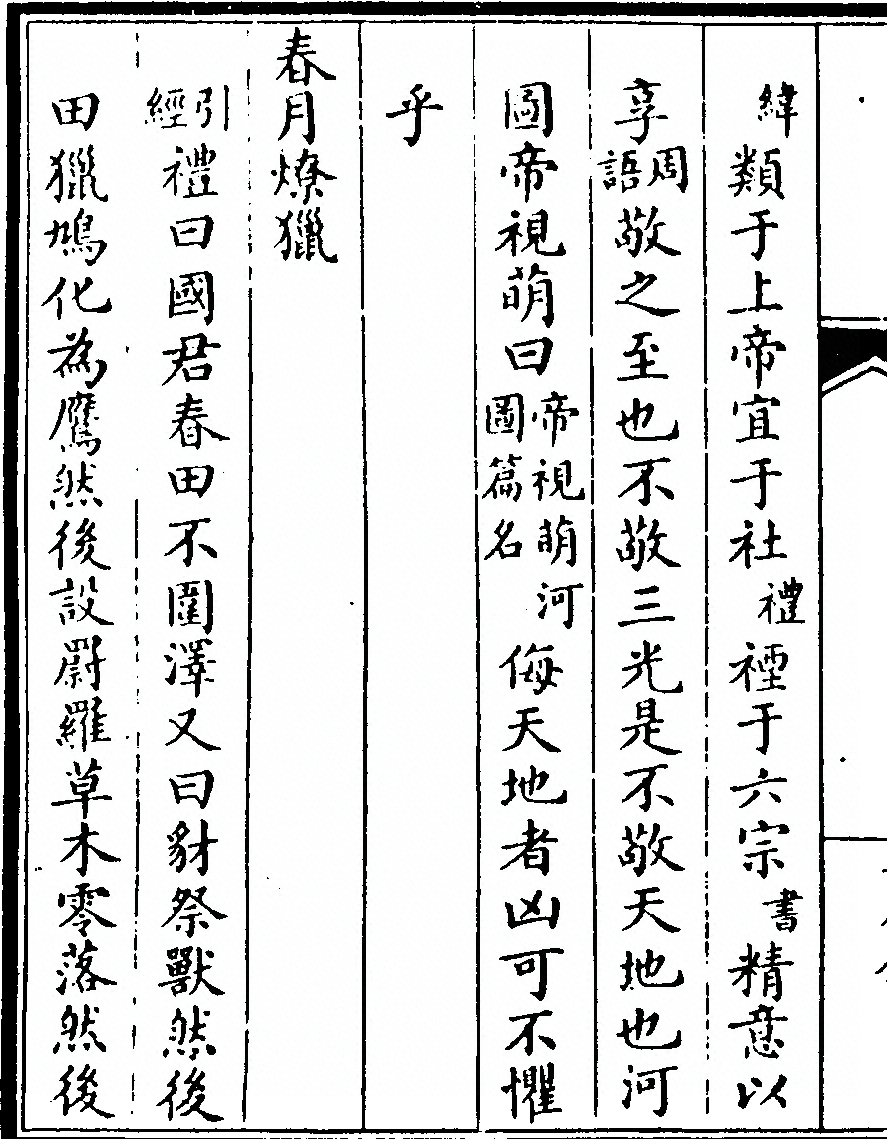 緯類于上帝宜于社禮禋于六宗書精意以
享周語敬之至也不敬三光是不敬天地也河
圖帝視萌曰帝視萌河圖篇名侮天地者凶可不懼
乎
春月燎獵
引經禮曰國君春田不圍澤又曰豺祭獸然後
田獵鳩化為鷹然後設罻羅草木零落然後